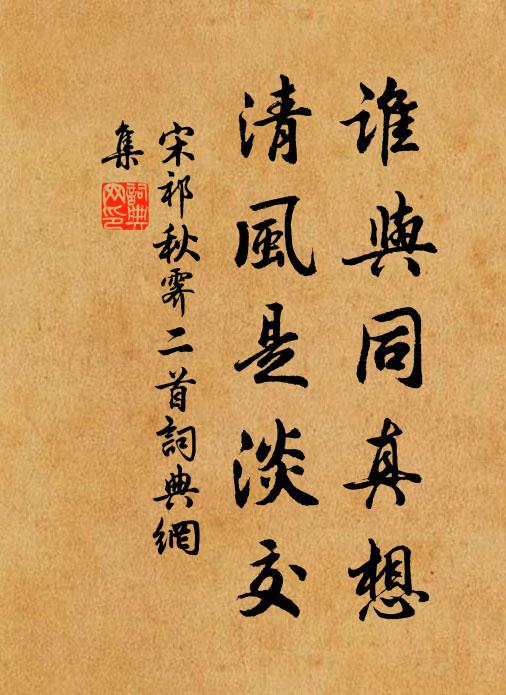 誰與同真想
清風是淡交
宋祁秋霽二首詞典網
集
詞典網印